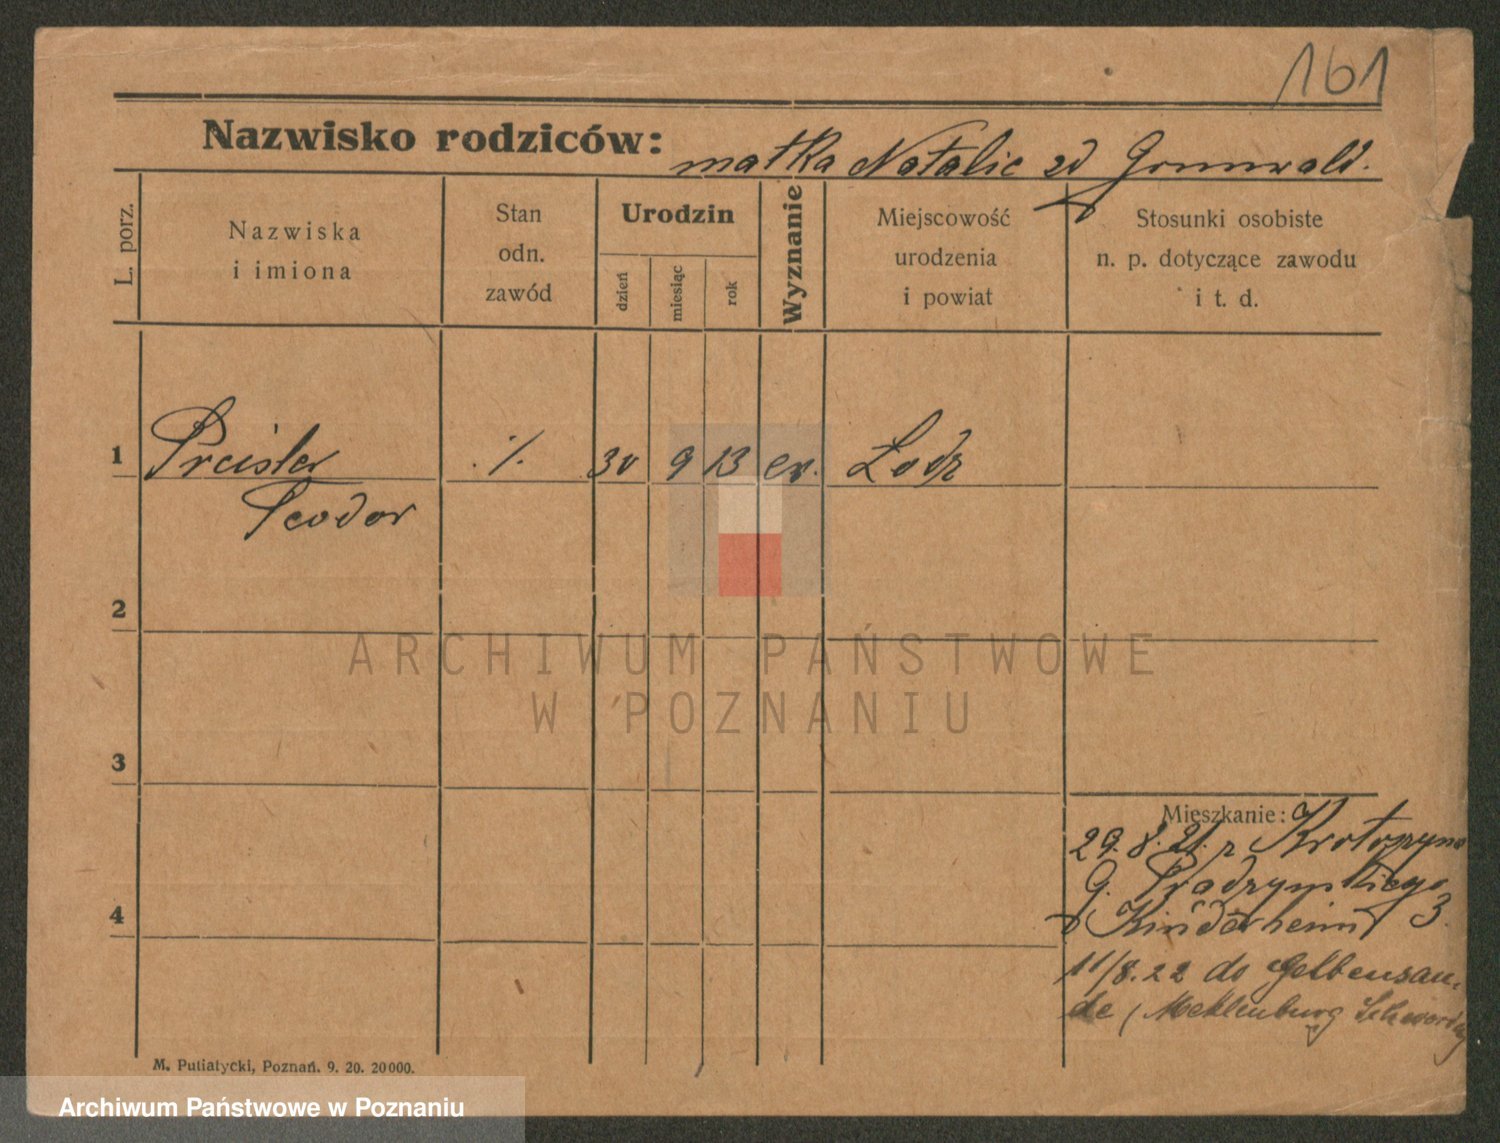 161
Nazwisko rodziców: matka Natalie zd Grunwald.
L. porz.
Nazwiska
i imiona
Stan
odn.
zawód
Urodzin
dzień
miesiąc
rok
Wyznanie
Miejscowość
urodzenia
i powiat
Stosunki osobiste
n. p. dotyczące zawodu
i t. d.
1 Preisler ./. 30 9 13 ev. Łodz
Teodor
2
3
4
Mieszkanie:
29.8.21. z Krotoszyna
G. Prądzyńskiego 3
Kinderheim
11/8.22 do Gelbensan-
de (Meklenburg
M. Putiatycki, Poznań. 9. 20. 20000.
ARCHIWUM PAŃSTWOWE
W POZNANIU
Archiwum Państwowe w Poznaniu